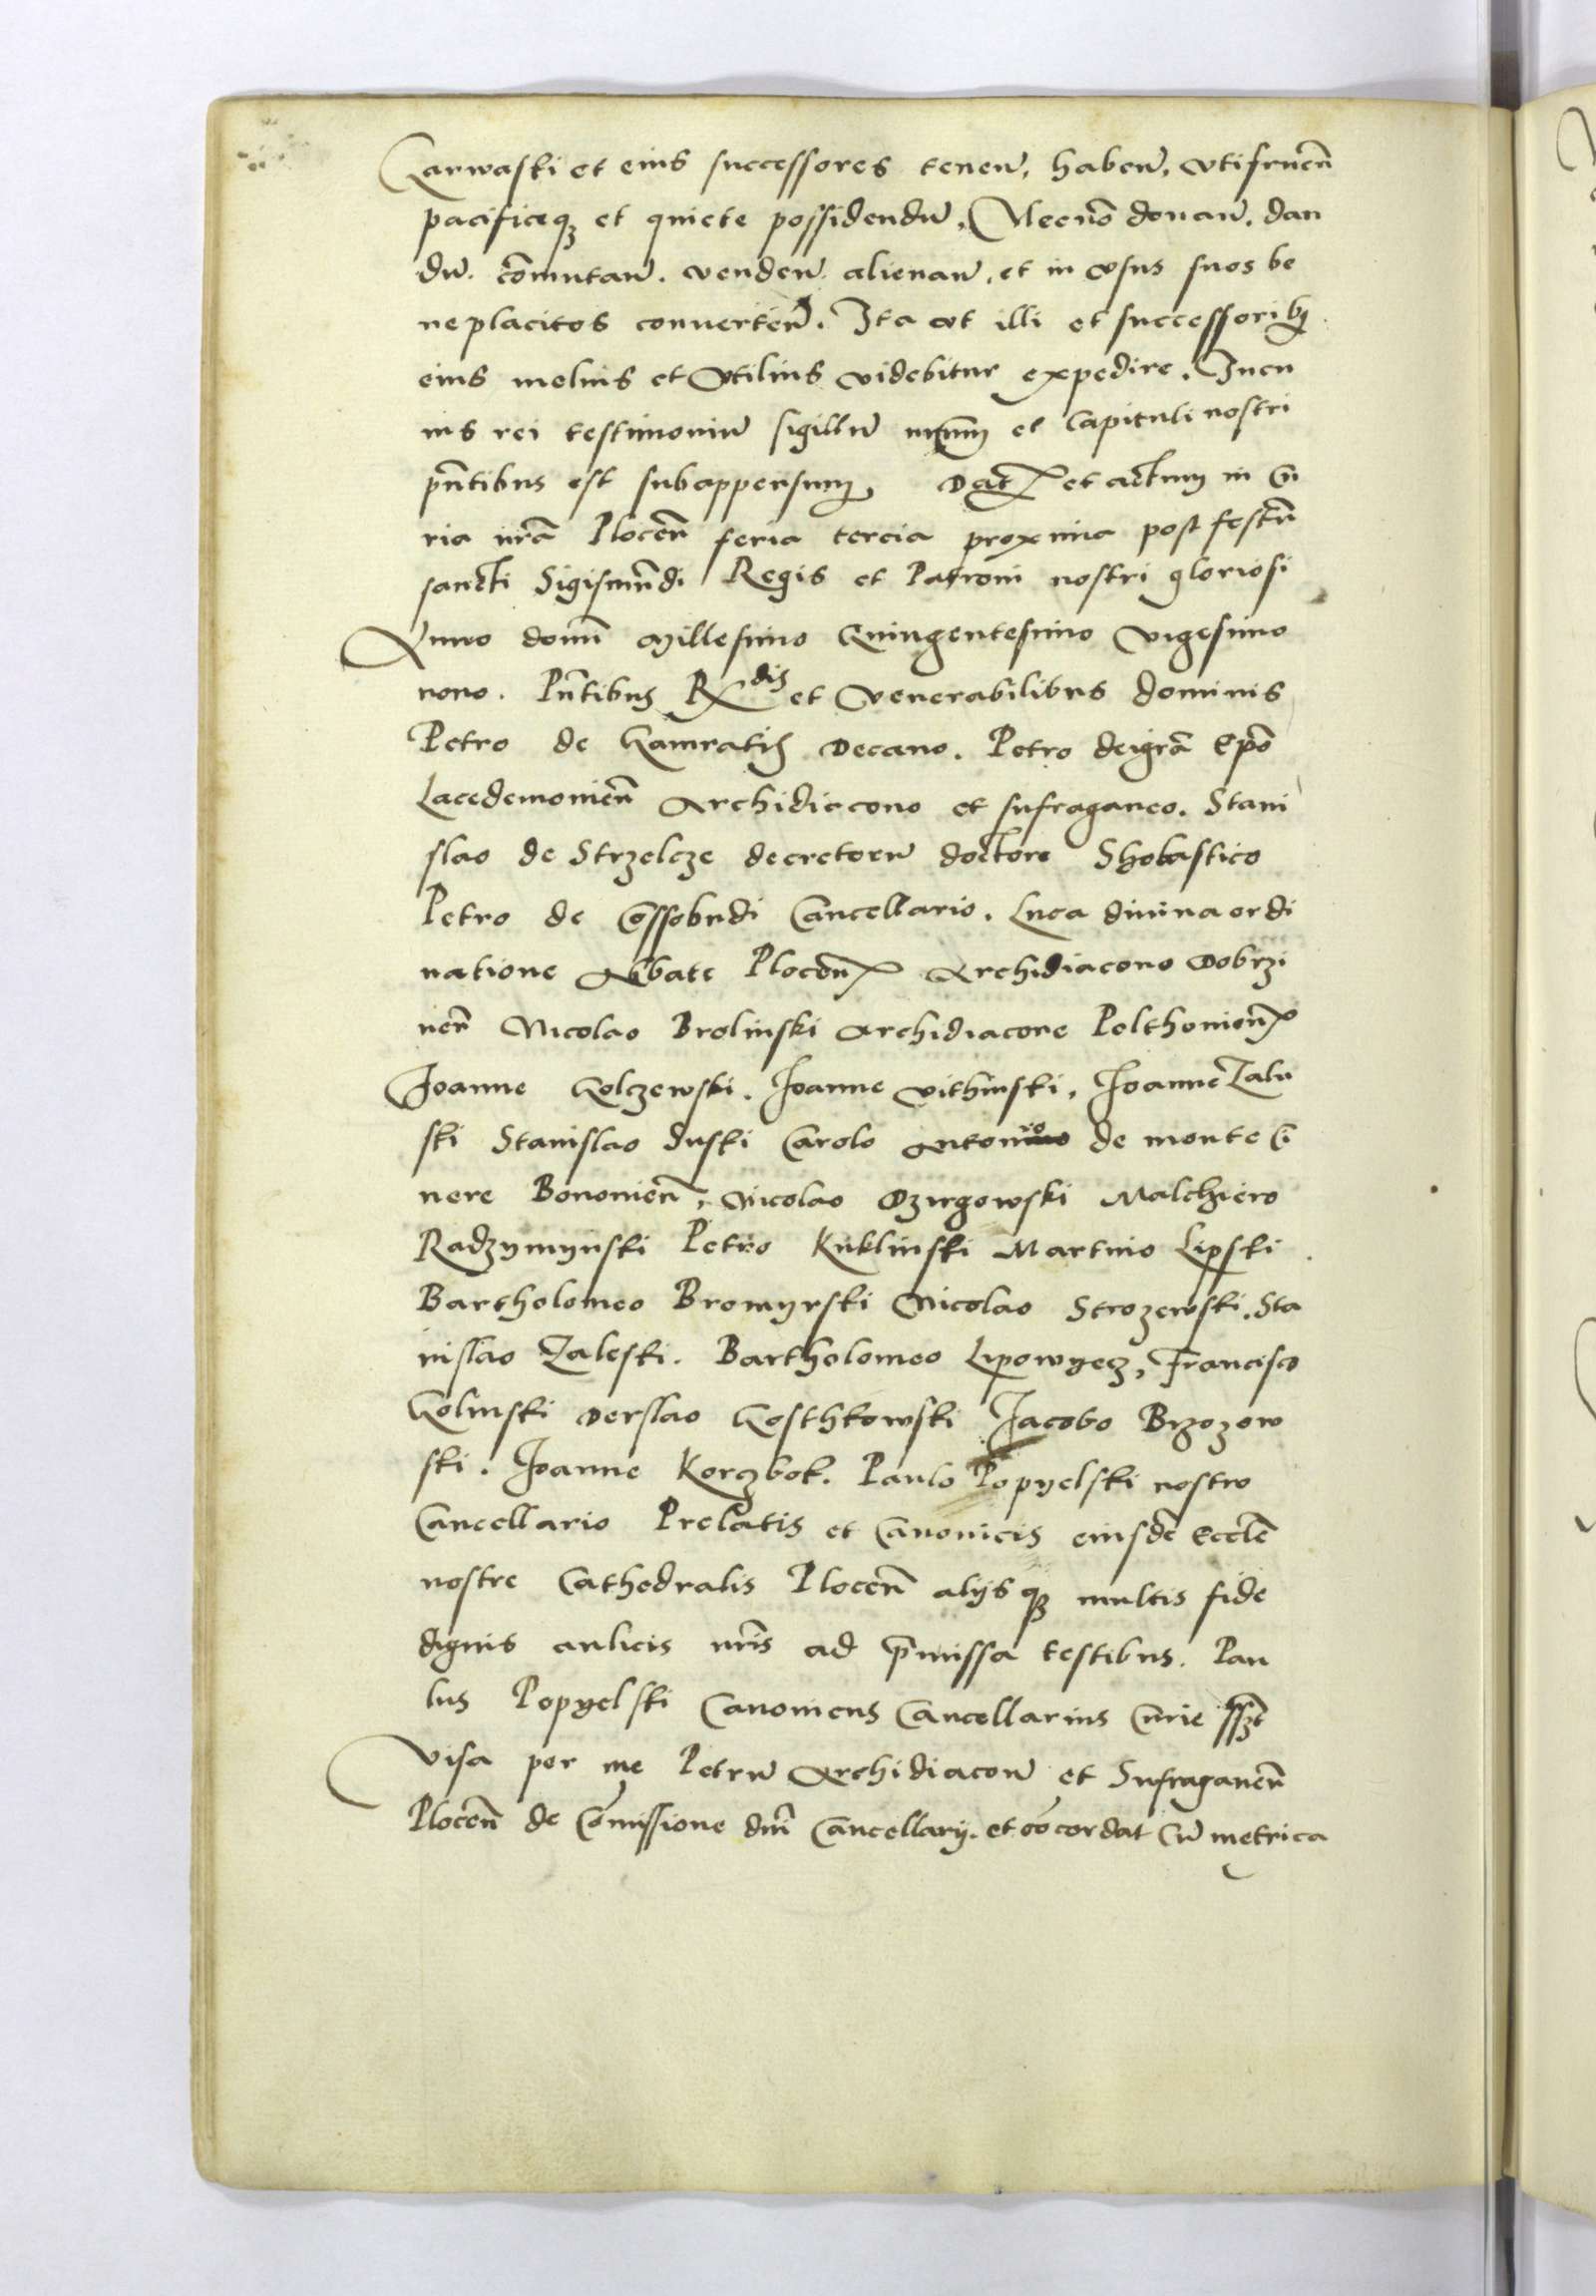 Karwaski et eius successores tenen̄. haben̄. vtifruen̄
pacificeqꝫ et quiete possidendū. Necnō donan̄. dan
dū. cōmutan̄. venden̄. alienan̄. et in vsus suos be
neplacitos conuerten̄. Ita vt illi et successoribꝫ
eius melius et vtilius videbitur expedire. Incu
ius rei testimoniū sigillū nr̄um et Capituli nostri
pn̄tibus est subappensum. Dat̄ et actum in Cu
ria nr̄a Plocen̄ feria tercia proxima post festū
sancti Sigismūdi Regis et Patroni nostri gloriosi
Anno domī Millesimo Quingentesimo vigesimo
nono. Pn̄tibus R̄dis et Venerabilibus dominis
Petro de Gamratis Decano. Petro deigrā Epō
Lacedemonien̄ Archidiacono et sufraganeo. Stani
slao de Strzelcze decretorū doctore Scholastico
Petro de Cossobudi Cancellario. Luca diuina ordi
natione Abbate Plocen̄ Archidiacono Dobrzi
nen̄ Nicolao Brolinski Archidiacono Polthonien̄
Joanne Golczewski. Joanne vithinski. Joanne Zalu
ski Stanislao Duski Carolo Antonio de monte Ci
nere Bononien̄. Nicolao Dzirgowski Malchiero
Radzymynski Petro Kuklinski Martino Lipski
Bartholomeo Bromyrski Nicolao Strozewski. Sta
nislao Zaleski. Bartholomeo Lipowyecz, Francisco
Golinski Derslao Gosthkowski Jacobo Brzozow
ski. Joanne Korczbok. Paulo Popyelski nostro
Cancellario Prelatis et Canonicis eiusdē Eccłe
nostre Cathedralis Plocen̄ alijsqꝫ multis fide
dignis aulicis nr̄is ad p̄missa testibus. Pau
lus Popyelski Canonicus Cancellarius Curie sszt
Visa per me Petrū Archidiaconū et Sufraganeū
Plocen̄ de Cōmissione dnī Cancellarij. et cōcordat cū metrica